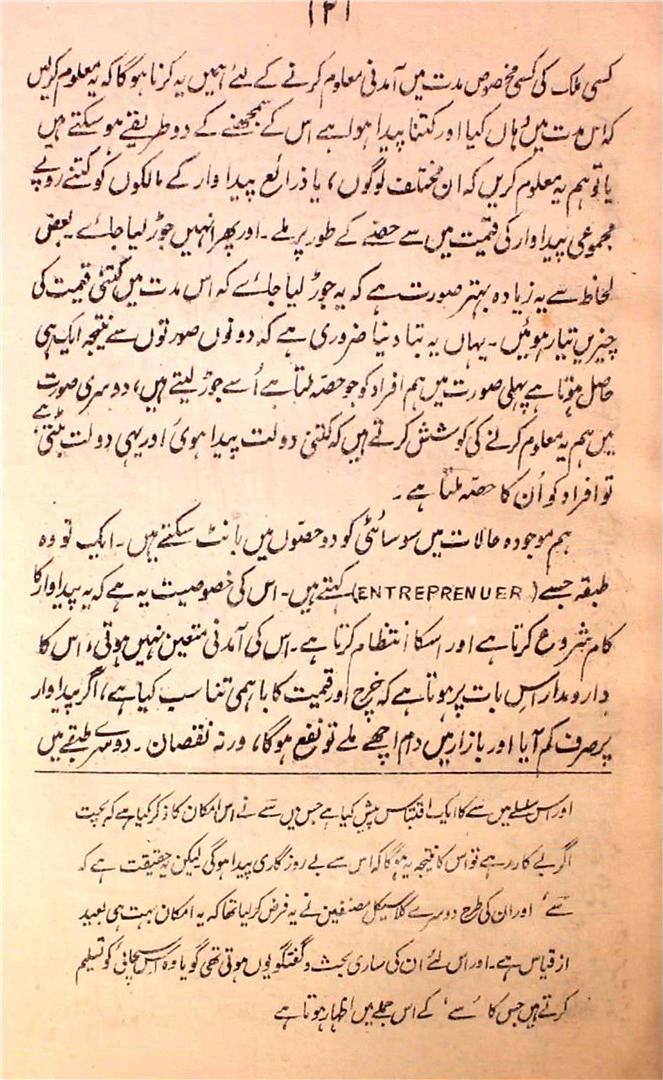 ۱۳۱
کسی ملک کی کسی مخصوص مدت میں آمدنی معلوم کرنے کے لئے ہمیں یہ کرنا ہوگا کہ یہ معلوم کریں
کہ اس مدت میں وہاں کیا اور کتنا پیدا ہوا ہے اس کے سمجھنے کے دو طریقے ہو سکتے ہیں
یا تو ہم یہ معلوم کریں کہ ان مختلف لوگوں، یا ذرائع پیداوار کے مالکوں کو کتنے روپے
مجموعی پیداوار کی قیمت میں سے حصے کے طور پر ملے۔ اور پھر انہیں جوڑ لیا جائے۔ بعض
لحاظ سے یہ زیادہ بہتر صورت ہے کہ یہ جوڑ لیا جائے کہ اس مدت میں کتنی قیمت کی
چیزیں تیار ہوئیں۔ یہاں یہ بتا دینا ضروری ہے کہ دونوں صورتوں سے نتیجہ ایک ہی
حاصل ہوتا ہے پہلی صورت میں ہم افراد کو جو حصّہ ملتا ہے اُسے جوڑ لیتے ہیں، دوسری صورت
میں ہم یہ معلوم کرنے کی کوشش کرتے ہیں کہ کتنی دولت پیدا ہوئی اور یہی دولت بٹتی ہے
تو افراد کو اُن کا حصّہ ملتا ہے۔
ہم موجودہ حالات میں سوسائٹی کو دو حصّوں میں بانٹ سکتے ہیں۔ ایک تو وہ
طبقہ جسے (ENTREPRENUER) کہتے ہیں۔ اس کی خصوصیت یہ ہے کہ یہ پیداوار کا
کام شروع کرتا ہے اور اسکا انتظام کرتا ہے۔ اس کی آمدنی متعین نہیں ہوتی، اس کا
دارومدار اس بات پر ہوتا ہے کہ خرچ اور قیمت کا باہمی تناسب کیا ہے، اگر پیداوار
پر صرف کم آیا اور بازار میں دام اچھے ملے تو نفع ہوگا، ورنہ نقصان۔ دوسرے طبقے میں
اور اس سلسلے میں سے کا ایک اقتباس پیش کیا ہے جس میں سے نے اس امکان کا ذکر کیا ہے کہ بچت
اگر بے کار رہے تو اس کا نتیجہ یہ ہوگا کہ اس سے بے روزگاری پیدا ہوگی لیکن یہ حقیقت ہے کہ
سے' اور ان کی طرح دوسرے کلاسیکل مصنفین نے یہ فرض کر لیا تھا کہ یہ امکان بہت ہی بعید
از قیاس ہے۔ اور اس لئے ان کی ساری بحث و گفتگو یوں ہوتی تھی گویا وہ اس سچائی کو تسلیم
کرتے ہیں جس کا 'سے' کے اس جملے میں اظہار ہوتا ہے